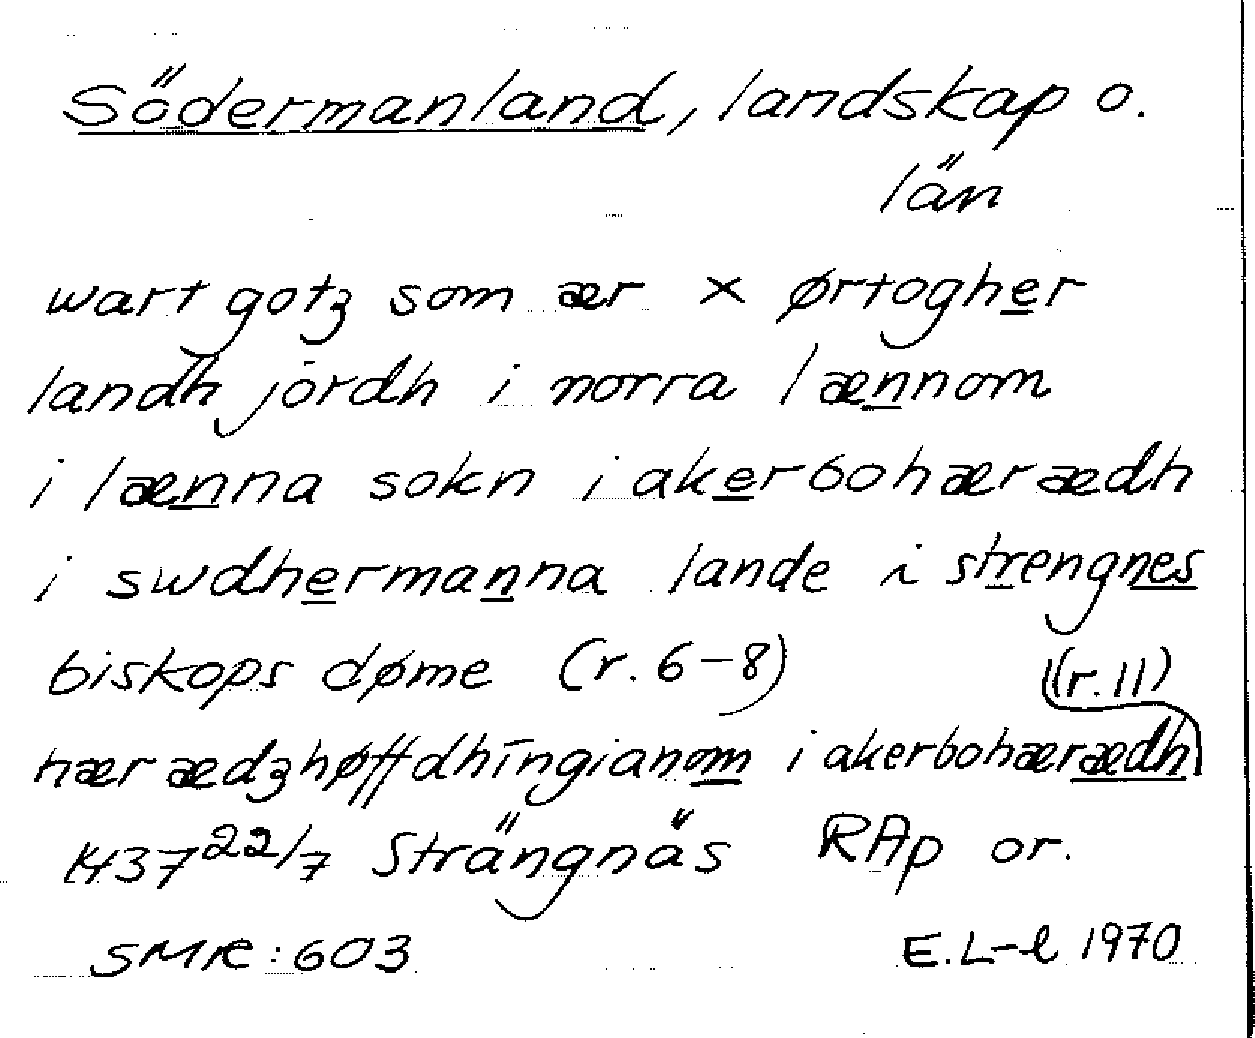 Södermanland, landskap o.
län
wart gotz som ær x ørtogher
landh jördh i norra lænnom
i lænna sokn i akerbohæræædh
i swdhermanna lande i strengnes
biskops døme (r. 6-8)
hæræædzhøffdhingianom i akerbohæræædh (r. 11)
1437 22/7 Strängnäs RAp or.
SMR: 603 E.L-l 1970